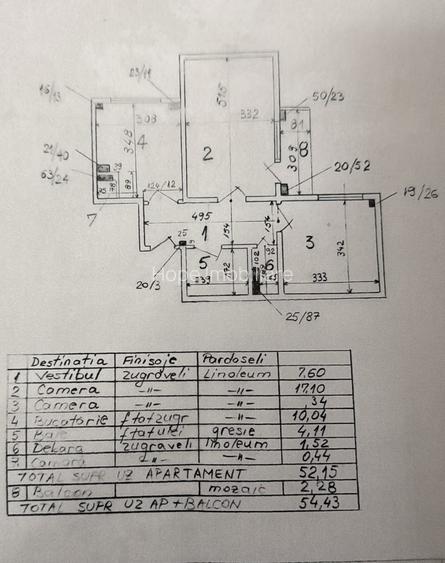 23/11
16/13
308
4
348
515
332
2
50/23
81
309
8
20/52
19/26
21/40
63/24
28
78
89
7
124/12
495
1
154
154
3
342
333
25
20/3
5
239
172
102
6
25/87
Hope Imobiliare
Destinatia Finisaje Pardoseli
1 Vestibul zugraveli Linoleum 7.60
2 Camera -"- -"- 17.10
3 Camera -"- -"- ,34
4 Bucatarie f+zugr -"- 10,04
5 Baie gresie 4,11
6 zugraveli linoleum 1,52
-"- -"- 0,44
TOTAL SUPR UZ APARTAMENT 52,15
8 Balcon mozaic 2,28
TOTAL SUPR UZ AP+BALCON 54,43